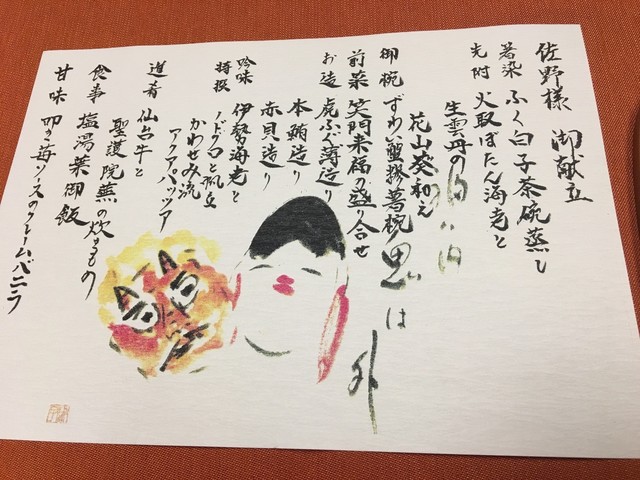 佐野様 御献立
若染 ふく白子茶碗蒸し
先附 火取ぼたん海老と
生雲丹の
花山葵和え
福は内
御椀 ずわい蟹糝薯椀
鬼は外
前菜 笑門来福の盛り合せ
お造 虎ふぐ薄造り
本鮪造り
赤貝造り
吟味 伊勢海老と
特撰 ノドグロと
かわせみ流
アクアパッツァ
進肴 仙台牛と
聖護院蕪の炊きもの
食事 塩湯葉御飯
甘味 叩き苺ソースのクレームダンジュ